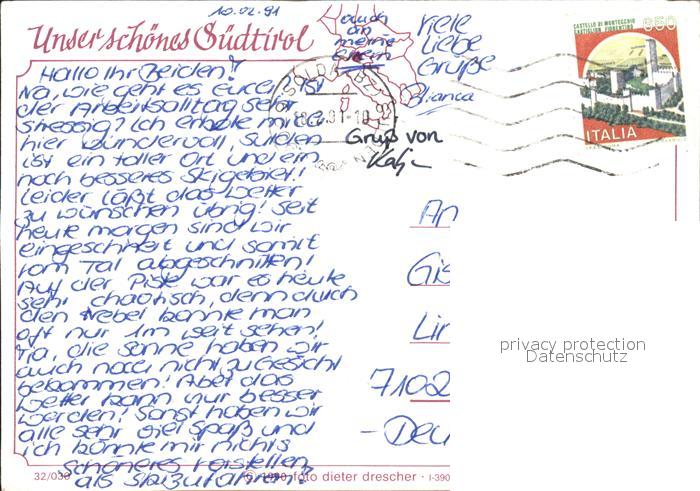 10.02.91
Unser schönes Südtirol
auch
an
meine
Eltern
Viele
Liebe
Grüße
Bianca
Gruß von
Katja
CASTELLO DI MONTECCHIO
CASTIGLION FIORENTINO
650
ITALIA
Hallo Ihr Beiden!
Na, wie geht es Euch? Ist
der Arbeitsalltag sehr
stressig? Ich erhole mich
hier wundervoll, Sulden
ist ein toller Ort und ein
noch besseres Skigebiet!
Leider läßt das Wetter
zu wünschen übrig! Seit
heute morgen sind wir
eingeschneit und somit
vom Tal abgeschnitten!
Auf der Piste war es heute
sehr chaotisch, denn durch
den Nebel konnte man
oft nur 1m weit sehen!
Tja, die Sonne haben wir
auch noch nicht zu Gesicht
bekommen! Aber das
Wetter kann nur besser
werden! Sonst haben wir
alle sehr viel Spaß und
ich könnte mir nichts
schöneres vorstellen
als Skizufahren!
An
Gis
Lin
7102
- Deu
privacy protection
Datenschutz
32/030
© 1990 foto dieter drescher · I-390